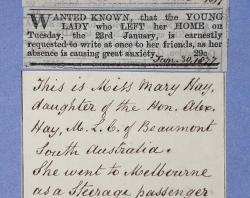 1877
WANTED KNOWN, that the YOUNG
LADY who LEFT her HOME on
Tuesday, the 23rd January, is earnestly
requested to write at once to her friends, as her
absence is causing great anxiety. 29c
Jan. 30, 1877
This is Miss Mary Hay,
daughter of the Hon. Alex.
Hay, M.L.C. of Beaumont
South Australia.
She went to Melbourne
as a Steerage passenger